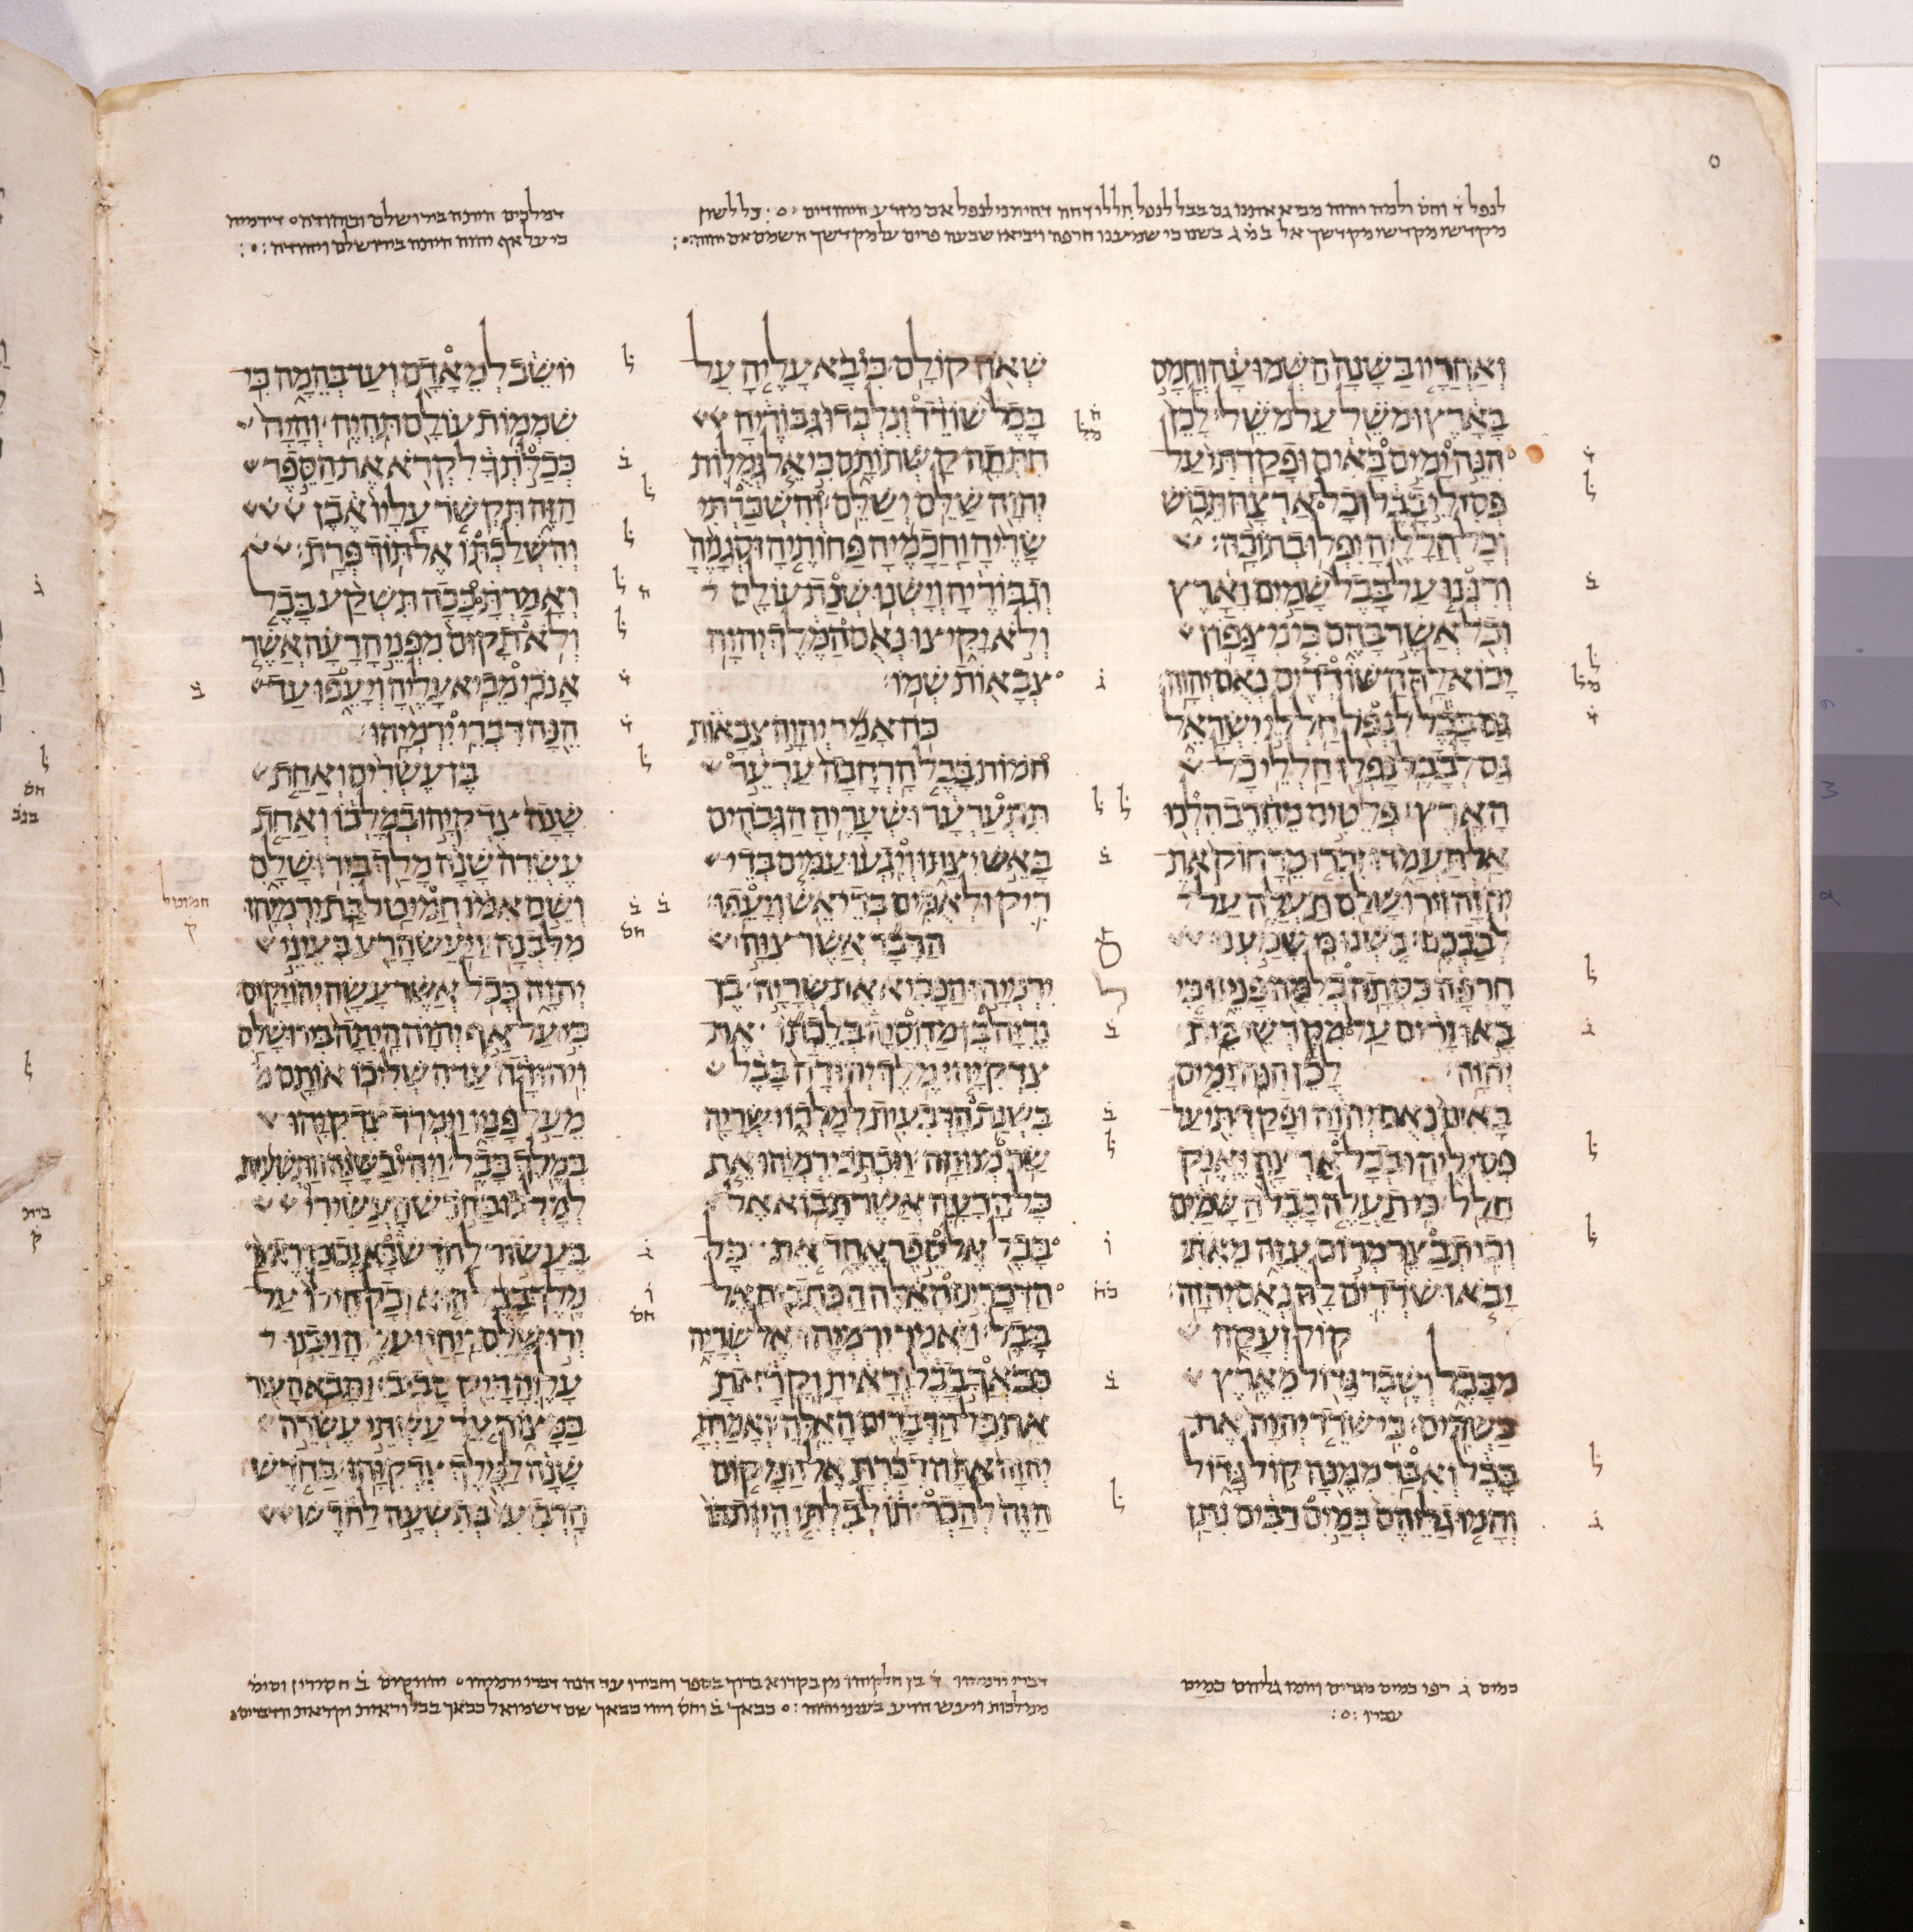 לנפל ד וחס ולמה יהוה מביא אתנו גם בבל לנפל חללי דחה דחיתני לנפל אם מזרע היהודים כל לשון
מקדשי מקדשי מקדשך אל במ ג בשנו כי שמענו חרפה ויביאו שבעה פרים על מקדשך השמם
דמלכים היתה בירושלם וביהודה דירמיה
כי על אף יהוה היתה בירושלם ויהודה
ואחריו בשנה השמועה וחמס
בארץ ומשל על משל לכן
הנה ימים באים ופקדתי על
פסילי בבל וכל ארצה תבוש
וכל חלליה יפלו בתוכה
ורננו על בבל שמים וארץ
וכל אשר בהם כי מצפון
יבוא לה השודדים נאם יהוה
גם בבל לנפל חללי ישראל
גם לבבל נפלו חללי כל
הארץ פלטים מחרב הלכו
אל תעמדו זכרו מרחוק את
יהוה וירושלם תעלה על
לבבכם בשנו כי שמענו
חרפה כסתה כלמה פנינו כי
באו זרים על מקדשי בית
יהוה לכן הנה ימים
באים נאם יהוה ופקדתי על
פסיליה ובכל ארצה יאנק
חלל כי תעלה בבל השמים
וכי תבצר מרום עזה מאתי
יבאו שדדים לה נאם יהוה
קול זעקה
מבבל ושבר גדול מארץ
כשדים כי שדד יהוה את
בבל ואבד ממנה קול גדול
והמו גליהם כמים רבים נתן
שאון קולם כי בא עליה על
בבל שודד ונלכדו גבוריה
חתתה קשתותם כי אל גמלות
יהוה שלם ישלם והשכרתי
שריה וחכמיה פחותיה וסגניה
וגבוריה וישנו שנת עולם
ולא יקיצו נאם המלך יהוה
צבאות שמו
כה אמר יהוה צבאות
חמות בבל הרחבה ערער
תתערער ושעריה הגבהים
באש יצתו ויגעו עמים בדי
ריק ולאמים בדי אש ויעפו
הדבר אשר צוה
ירמיהו הנביא את שריה בן
נריה בן מחסיה בלכתו את
צדקיהו מלך יהודה בבל
בשנת הרבעית למלכו ושריה
שר מנוחה ויכתב ירמיהו את
כל הרעה אשר תבוא אל
בבל אל ספר אחד את כל
הדברים האלה הכתבים אל
בבל ויאמר ירמיהו אל שריה
כבאך בבל וראית וקראת
את כל הדברים האלה ואמרת
יהוה אתה דברת אל המקום
הזה להכריתו לבלתי היות בו
יושב למאדם ועד בהמה כי
שממות עולם תהיה והיה
ככלתך לקרא את הספר
הזה תקשר עליו אבן
והשלכתו אל תוך פרת
ואמרת ככה תשקע בבל
ולא תקום מפני הרעה אשר
אנכי מביא עליה ויעפו עד
הנה דברי ירמיהו
בן עשרים ואחת
שנה צדקיהו במלכו ואחת
עשרה שנה מלך בירושלם
ושם אמו חמיטל בת ירמיהו
מלבנה ויעש הרע בעיני
יהוה ככל אשר עשה יהויקים
כי על אף יהוה היתה בירושלם
ויהודה עד השליכו אותם
מעל פניו וימרד צדקיהו
במלך בבל ויהי בשנה התשעית
למלכו בחדש העשירי
בעשור לחדש בא נבוכדראצר
מלך בבל הוא וכל חילו על
ירושלם ויחנו עליה ויבנו
עליה דיק סביב ותבא העיר
במצור עד עשתי עשרה
שנה למלך צדקיהו בחדש
הרביעי בתשעה לחדש
חמוטל
ק
כמים ג רפו כמים מגרים והמו גליהם כמים
עברו
דברי ירמיהו ד בן חלקיהו מן בקרוא ברוך בספר וחבירו עד הנה דברי ירמיהו יהויקים ב חסירין וסימ
ממלכות ויעש הרע בעיני יהוה כבאך ב וחס ויהי כבאך שם דשמואל כבאך בבל וראית וקראת הדברים